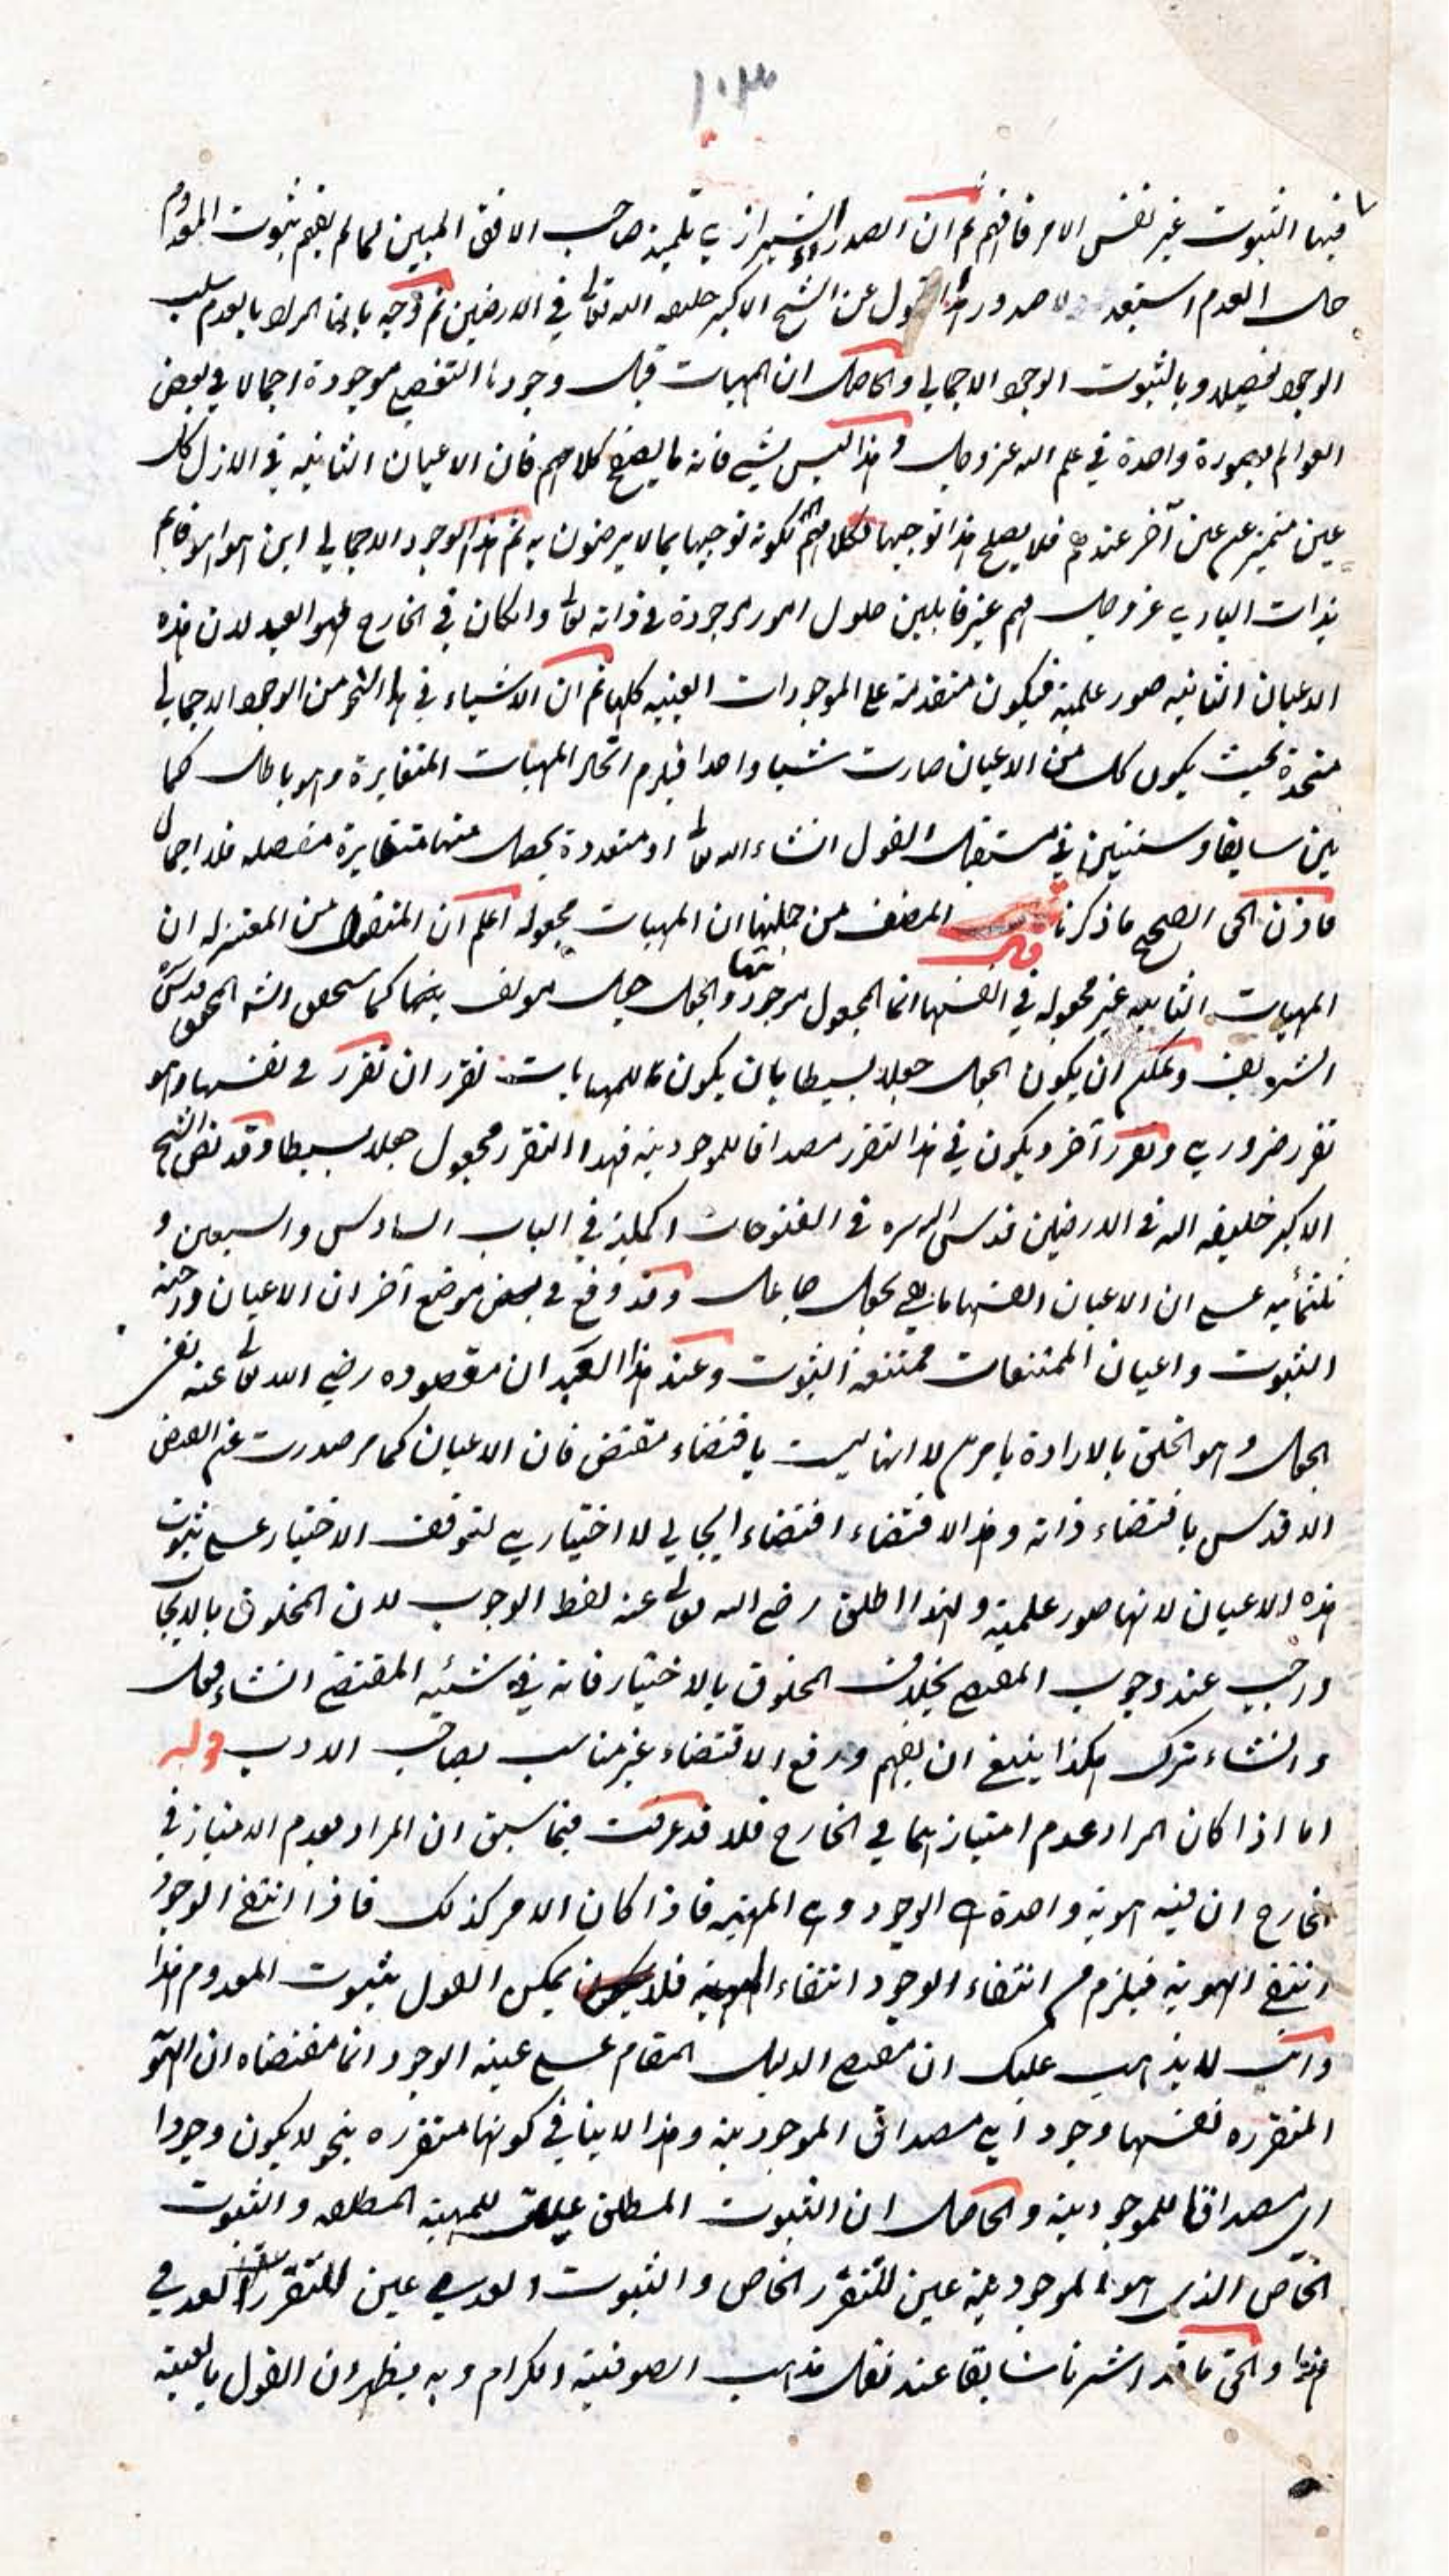 ١٠٣
فيها الثبوت غير نفس الامر فافهم ثم ان الصدر الشيرازي تلميذ صاحب الافق المبين لما لم يفهم ثبوت المعدوم
حال العدم استبعد صدور هذا القول عن الشيخ الاكبر خليفه الله تعالى في الارضين ثم وجه بان المراد بالعدم سلب
الوجود تفصيلا وبالثبوت الوجود الاجمالي والحاصل ان المهيات قبل وجودها التفصيلي موجودة اجمالا في بعض
العوالم بصورة واحدة في علم الله عز وجل وهذا ليس بشيء فانه كلامهم فان الاعيان الثابتة في الازل كل
عين متميز عن عين آخر عندهم فلا يصلح هذا توجيها لكلامهم لكونه توجيها بما لا يرضون به ثم هذا الوجود الاجمالي اين هو اهو قايم
بذات الباري عز وجل فهم غير قابلين حلول امور موجودة في ذاته تعالى وان كان في الخارج فهو ابعد لان هذه
الاعيان الثابتة صور علمية فيكون متقدمة على الموجودات العينية كلها ثم ان الاشياء في هذا النحو من الوجود الاجمالي
متحدة بحيث يكون كل من الاعيان صارت شيئا واحدا فيلزم اتحاد المهيات المتغايرة وهو باطل كما
بين سابقا وسنبين في مستقبل القول انشاء الله تعالى او متعددة يحصل منها متغايرة منفصله فلا اجمال
فاذن الحق الصحيح ما ذكرنا قال المصنف من جملتها ان المهيات مجعوله اعلم ان المنقول من المعتزله ان
المهيات الثابته غير مجعوله في انفسها انما المجعول موجوديتها والجعل جعل مولف بينهما كما المحقق قدس سره
الشريف ويمكن ان يكون الجعل جعلا بسيطا بان يكون للمهيات تقرر ان تقرر في نفسها وهو
تقرر ضروري وتقرر آخر ويكون في هذا التقرر مصداقا للموجودية فهذا التقرر مجعول جعلا بسيطا وقد نص الشيخ
الاكبر خليفه الله في الارضين قدس الله سره في الفتوحات المكية في الباب السادس والسبعين و
ثلثمائيه على ان الاعيان انفسها ما هي بجعل جاعل وقد وقع في بعض موضع آخر ان الاعيان واجبه
الثبوت واعيان الممتنعات ممتنعة الثبوت وعند هذا العبد ان مقصوده رضي الله تعالى عنه نفي
الجعل وهو الخلق بالارادة بامر لا انها ليست باقتضاء مقتض فان الاعيان كما مر صدرت عن الفيض
الاقدس باقتضاء ذاته وهذا الاقتضاء اقتضاء ايجابي لا اختياري لتوقف الاختيار على ثبوت
هذه الاعيان لانها صور علمية ولهذا اطلق رضي الله تعالى عنه لفظ الوجوب لان المخلوق بالايجاب
واجب عند وجوب المقتضي بخلاف المخلوق بالاختيار فانه في مشيئه المقتضي انشاء فعل
وانشاء ترك هكذا ينبغي ان يفهم ورفع الاقتضاء غير مناسب بصاحب الادب قوله
اما اذا كان المراد عدم امتيازهما في الخارج فلا قد عرفت فيما سبق ان المراد بعدم الامتياز في
الخارج ان فيه هوية واحدة هي الوجود وهي المهية فاذا كان الامر كذلك فاذا انتفى الوجود
انتفى الهوية فيلزم من انتفاء الوجود انتفاء المهية فلا يمكن القول بثبوت المعدوم هذا
وانت لا يذهب عليك ان مقتضى الدليل المقام على عينية الوجود انما مقتضاه ان الهوية
المتقرره نفسها وجود اي مصداق الموجودية وهذا لا ينافي كونها متقرره بنحو لا يكون وجودا
اي مصداقا للموجودية والحاصل ان الثبوت المطلق عين للمهية المطلقه والثبوت
الخاص الذي هو الموجودية عين للتقرر الخاص والثبوت العدمي عين للتقرر العدمي
هذا والحق ما قد اشرنا سابقا عند نقل مذهب الصوفية الكرام وبه يظهر ان القول بالعينية